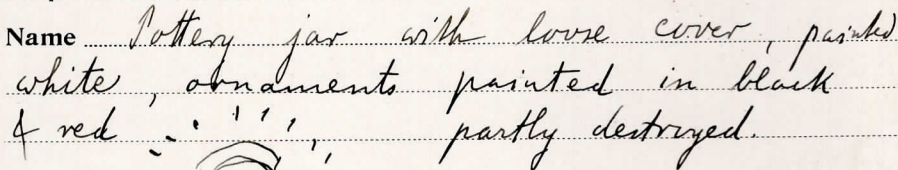 Name Pottery jar with loose cover, painted
white, ornaments painted in black
& red partly destroyed.